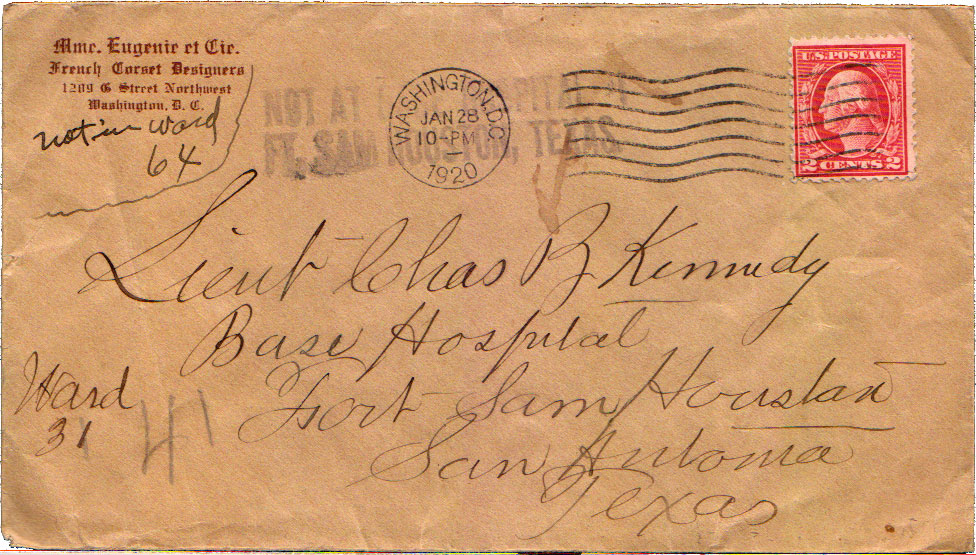 Mme. Eugenie et Cie.
French Corset Designers
1209 G Street Northwest
Washington, D. C.
not in ward
64
NOT AT HOSPITAL
FT. SAM HOUSTON, TEXAS
WASHINGTON, D.C.
JAN 28
10-PM
1920
U.S. POSTAGE
2 CENTS 2
Lieut Chas B Kennedy
Base Hospital
Fort Sam Houstan
San Antonia
Texas
Ward
31
41